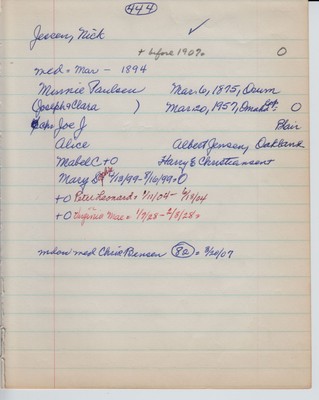 444
Jensen, Nick ✓
+ before 1907. O
med. Mar - 1894
Minnie Paulsen Mar. 6, 1875, Ocum
(Joseph & Clara ) Mar. 20, 1957, Omaha O
Joe J Blair
Alice Albert Jensen, Oakland
Mabel C + O Harry E Christiansen +
Mary 2/13/99 - 8/16/99 = O
+ O Peter Leonard = 1/11/04 - 04
+ O Virginia Mae = 1/7/28 - 2/8/28 =
mdow med Chris Benson 82 = 3/20/07